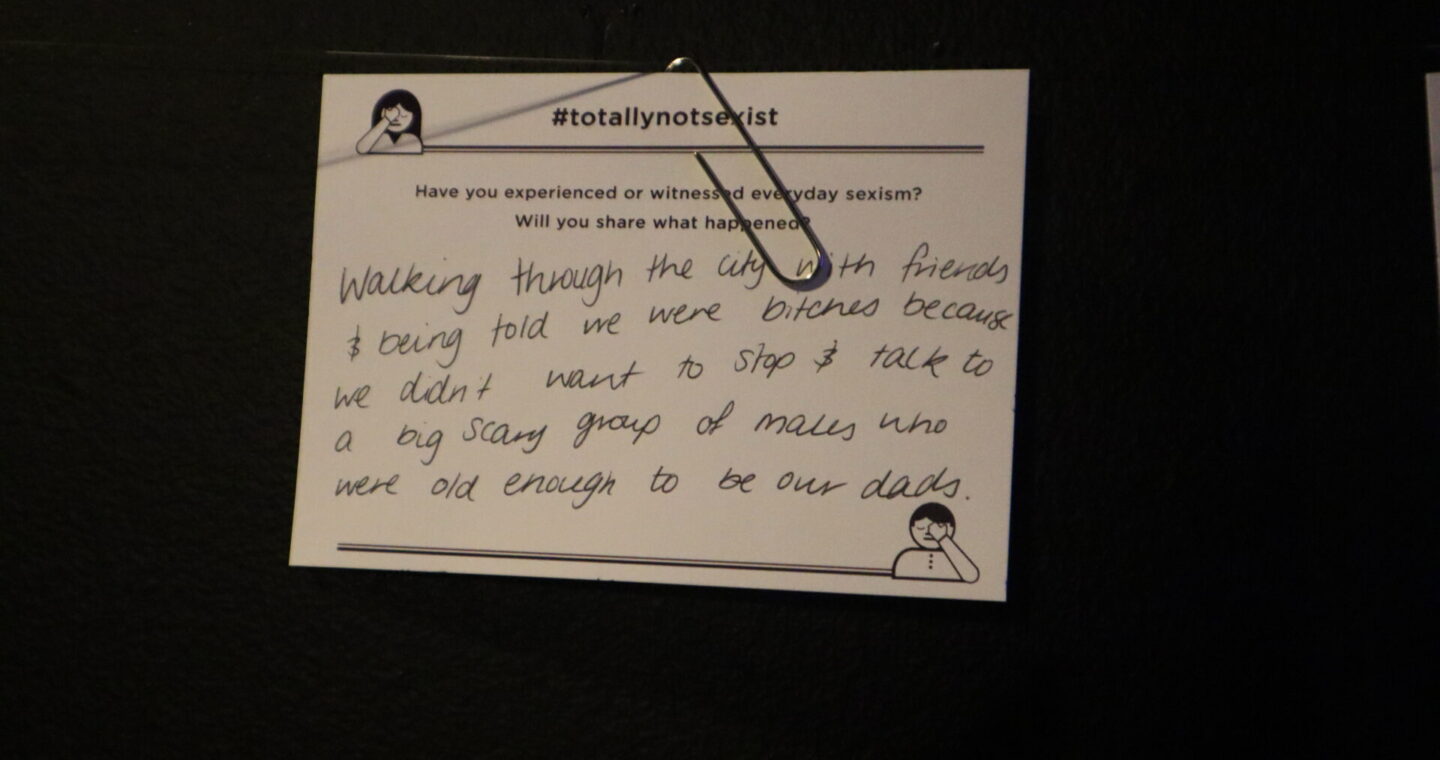 #totallynotsexist
Have you experienced or witnessed everyday sexism?
Will you share what happened?
Walking through the city with friends
& being told we were bitches because
we didn't want to stop & talk to
a big scary group of males who
were old enough to be our dads.